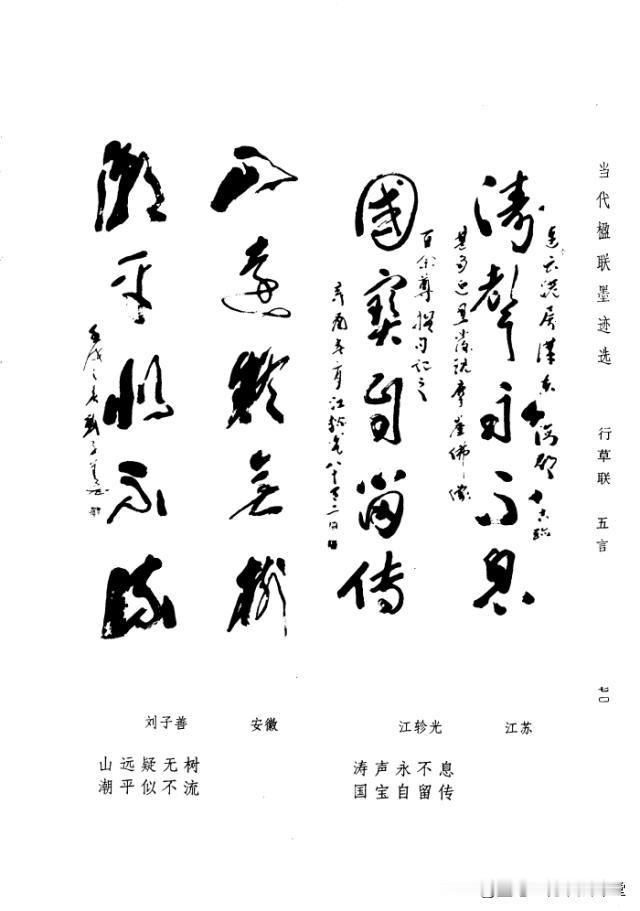 当代楹联墨迹选
行草联 五言
七〇
濤聲永不息
國寶自留传
百余尊撰句記之
山遠疑無樹
潮平似不流
江苏
江轸光
涛声永不息
国宝自留传
安徽
刘子善
山远疑无树
潮平似不流